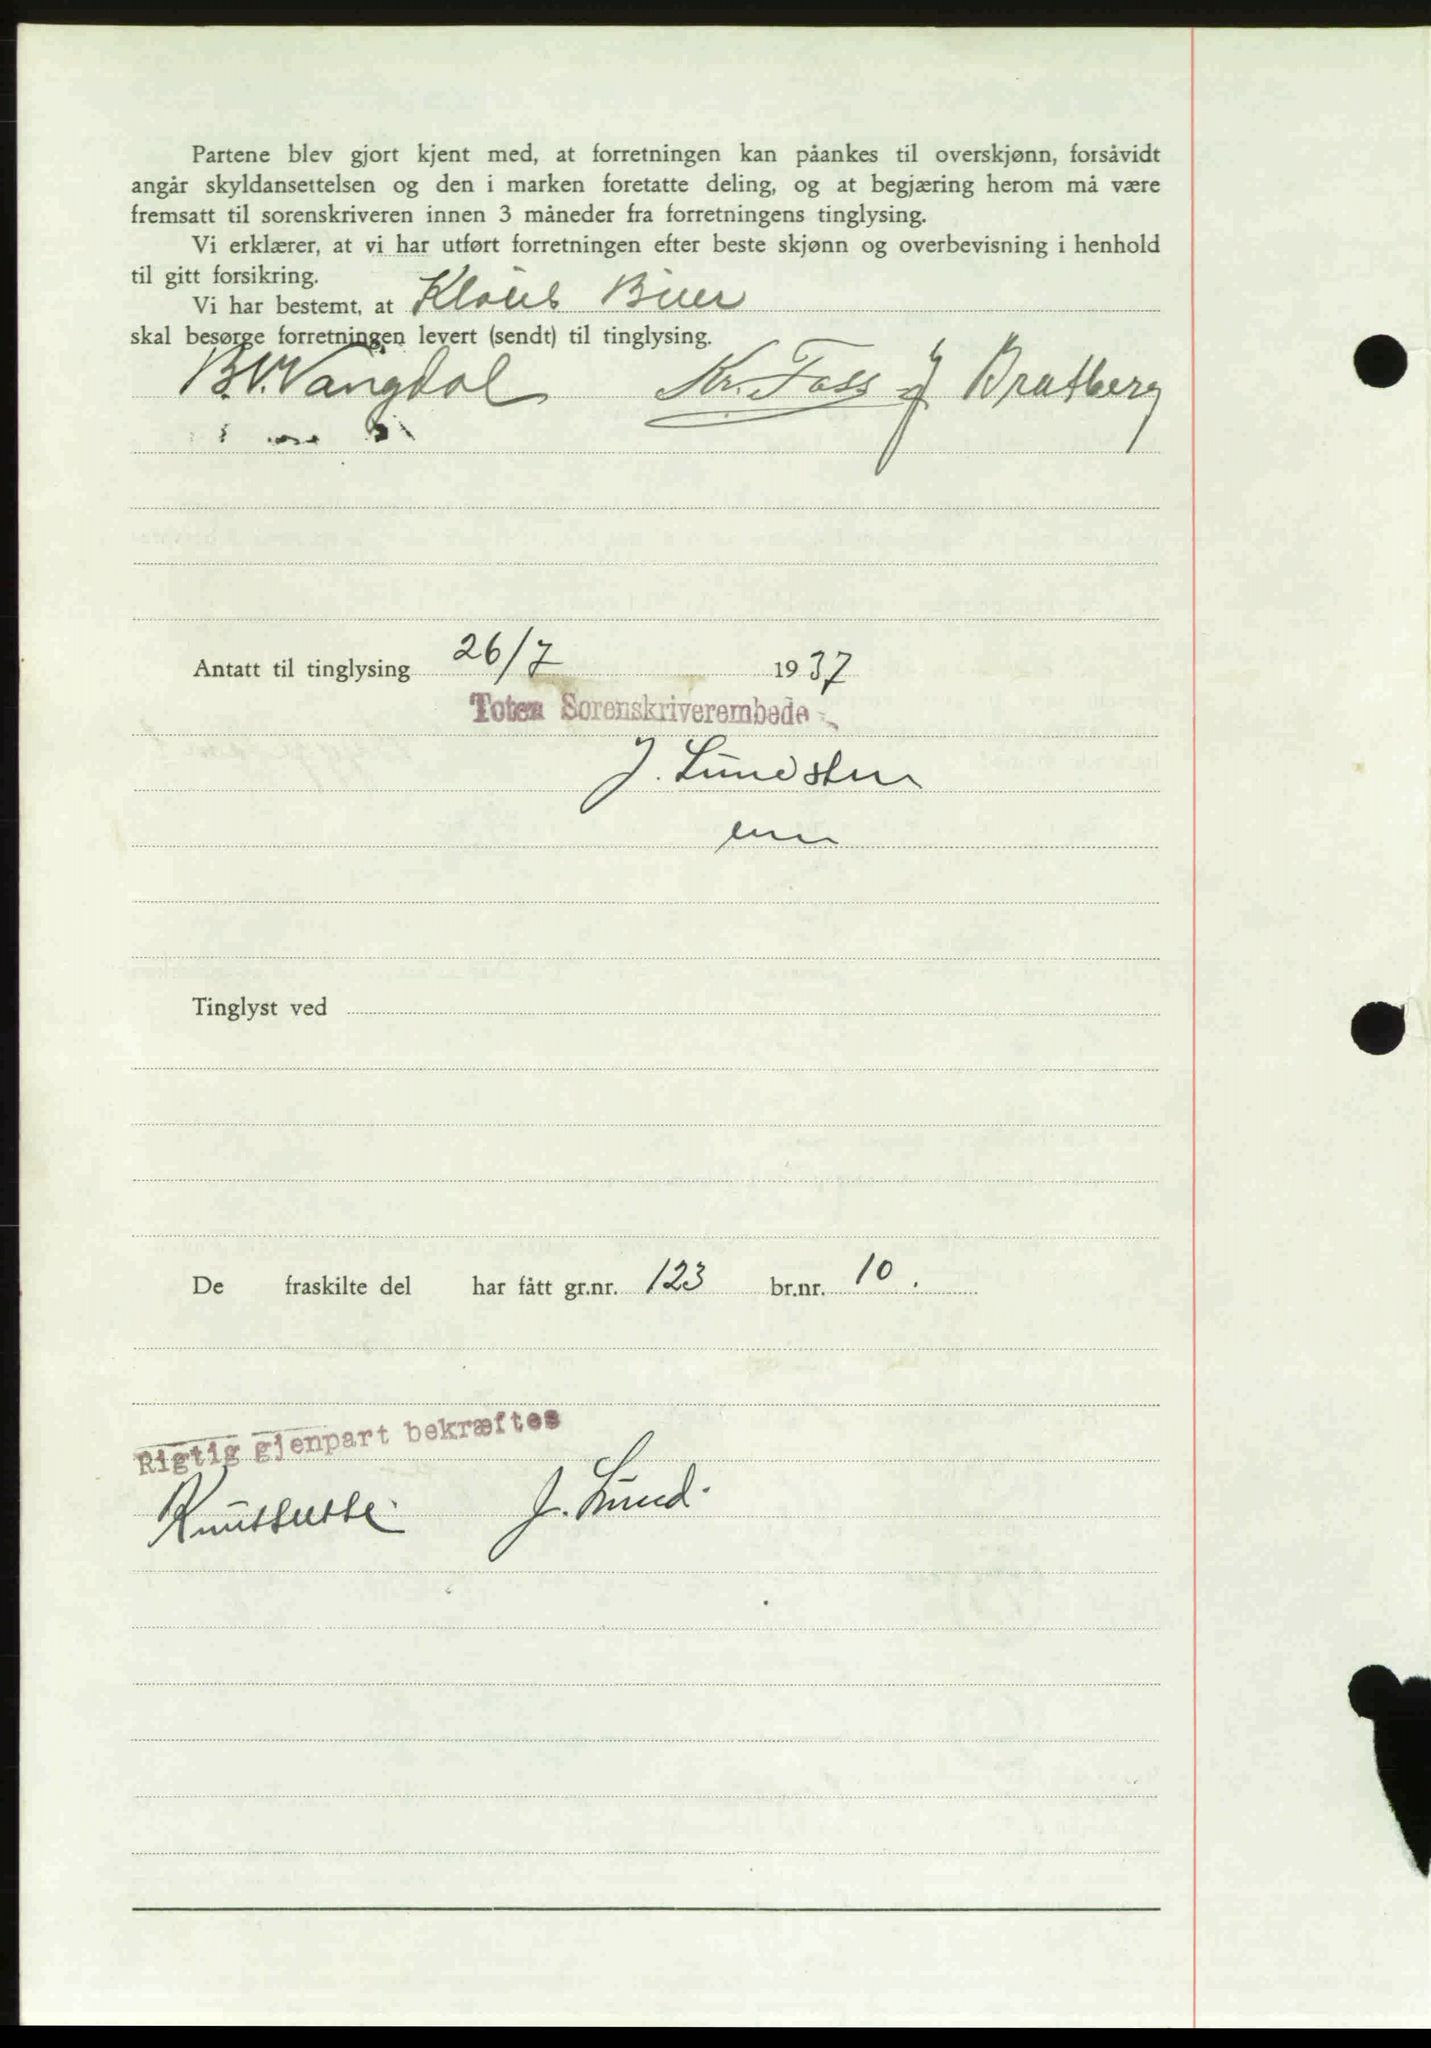 Partene blev gjort kjent med, at forretningen kan påankes til overskjønn, forsåvidt
angår skyldansettelsen og den i marken foretatte deling, og at begjæring herom må være
fremsatt til sorenskriveren innen 3 måneder fra forretningens tinglysing.
Vi erklærer, at vi har utført forretningen efter beste skjønn og overbevisning i henhold
til gitt forsikring.
Vi har bestemt, at Klaus Bner
skal besørge forretningen levert (sendt) til tinglysing.
B.V. Vangdal Kr. Foss J Bratberg
Antatt til tinglysing 26/7 1937
Toten Sorenskriverembede
J. Lundsten
Tinglyst ved
De fraskilte del har fått gr.nr. 123 br.nr. 10.
Rigtig gjenpart bekræftes
J. Lund.